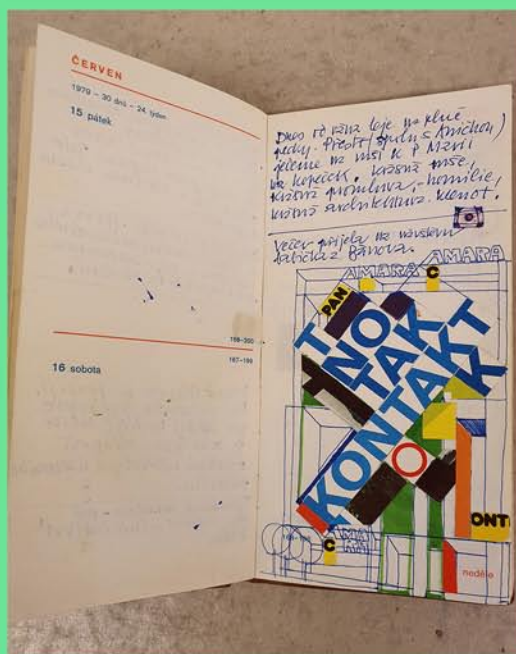 ČERVEN
1979 – 30 dnů – 24. týden
15 pátek
166-200
167-199
16 sobota
Dnes od rána leje na plné
pecky. Přesto (spolu s Aničkou)
jedeme na mši k P Marii
na kopeček. krásná mše,
krásná promluva, - homilie,
krásná architektura. klenot.
večer přijela na návštěvu
babička z Bánova.
AMARA
AMARA C
PAN
T
NO
TAK
KONTAKT
K
ONT
C
neděle